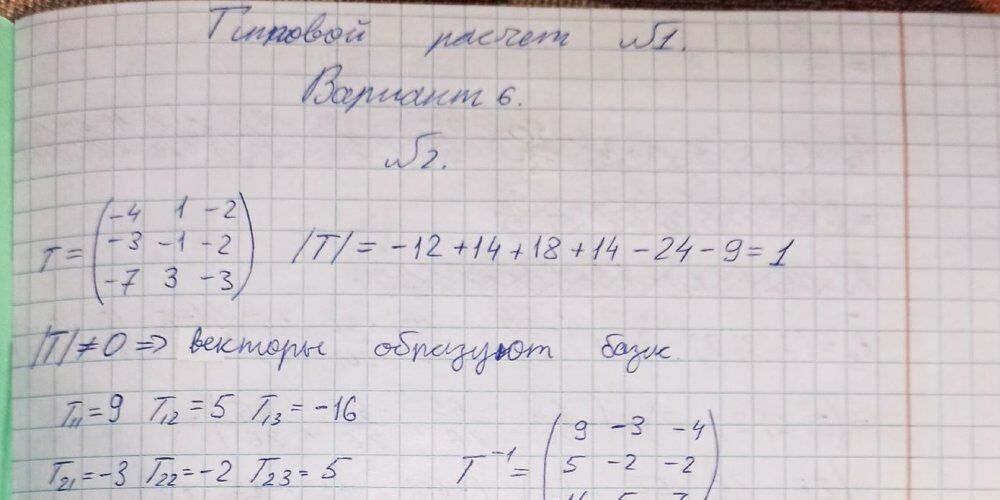 Типовой расчет №1.
Вариант 6.
№2.
T = (-4 1 -2
-3 -1 -2
-7 3 -3) |T| = -12 + 14 + 18 + 14 - 24 - 9 = 1
|T| ≠ 0 => векторы образуют базис.
T11 = 9 T12 = 5 T13 = -16
T21 = -3 T22 = -2 T23 = 5
T^-1 = (9 -3 -4
5 -2 -2